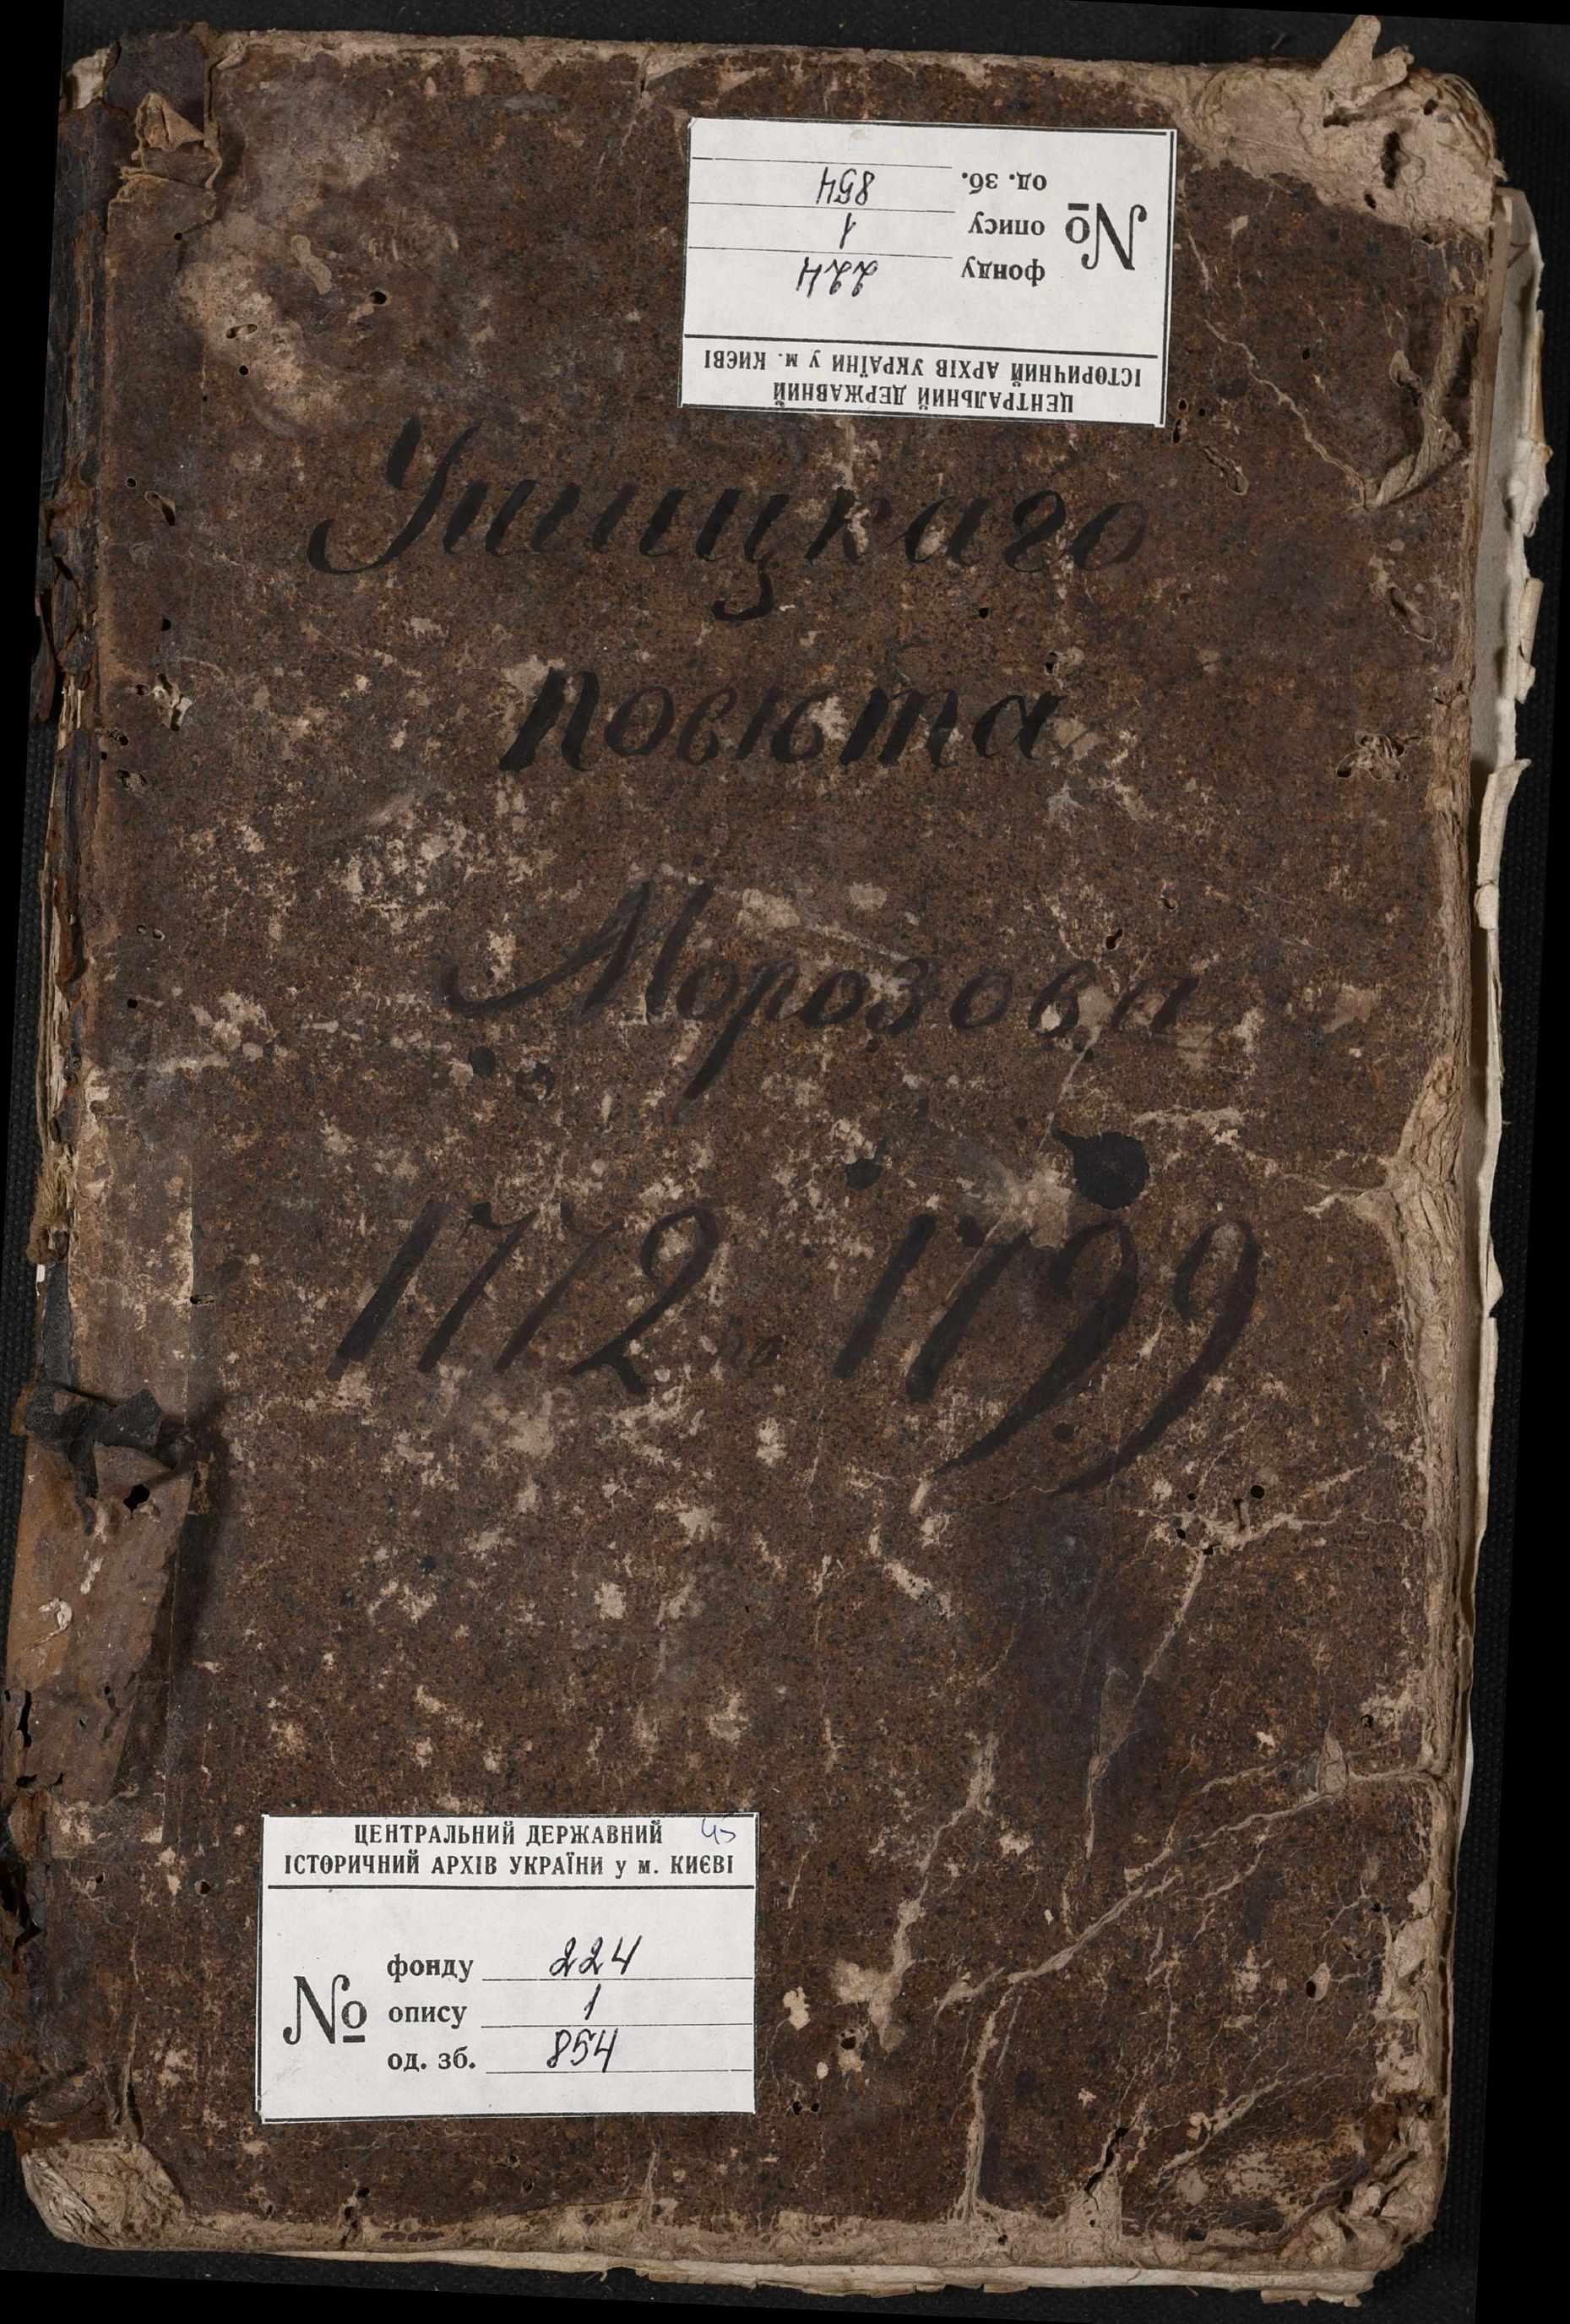 од. зб. 854
№ опису 1
фонду 224
ЦЕНТРАЛЬНИЙ ДЕРЖАВНИЙ
ІСТОРИЧНИЙ АРХІВ УКРАЇНИ у м. КИЄВІ
Ушицкаго
повѣта
Морозова
1772 до 1799
ЦЕНТРАЛЬНИЙ ДЕРЖАВНИЙ
ІСТОРИЧНИЙ АРХІВ УКРАЇНИ у м. КИЄВІ
фонду 224
№ опису 1
од. зб. 854